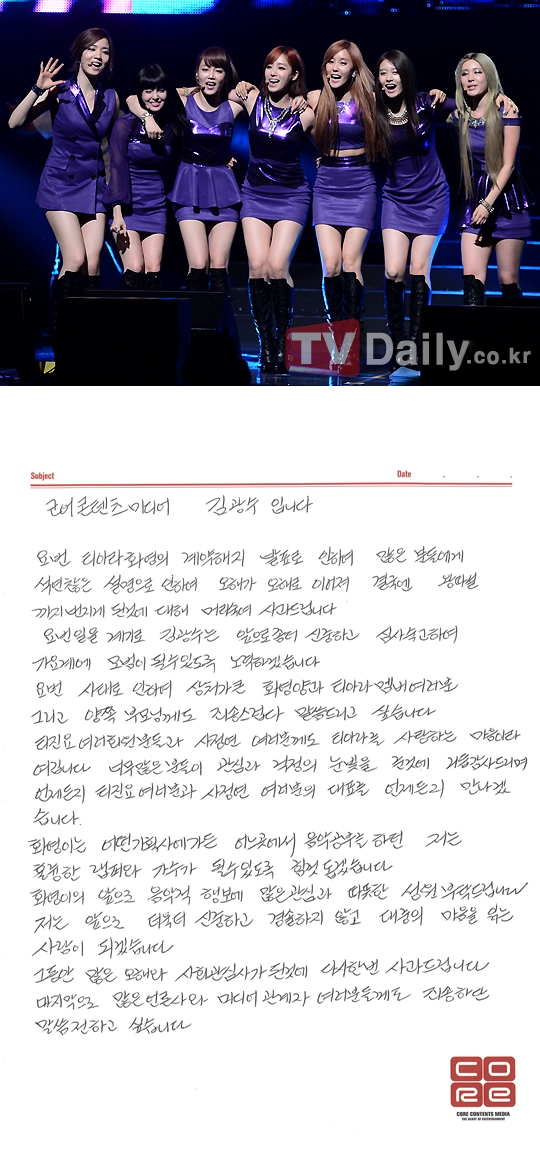 TVDaily.co.kr
Subject Date . . .
코어콘텐츠미디어 김광수 입니다
요번 티아라화영의 계약해지 발표로 인하여 많은 분들에게
석연찮은 설명으로 인하여 오해가 오해로 이어져 결국엔 왕따설
까지 번지게 된것에 대해 머리숙여 사과드립니다
요번일을 계기로 김광수는 앞으로좀더 신중하고 심사숙고하여
가요계에 모범이 될수있도록 노력하겠습니다
요번 사태로 인하여 상처가큰 화영양과 티아라멤버여러분
그리고 양쪽 부모님께도 죄송스럽다 말씀드리고 싶습니다
티진요 여러회원분들과 사정연 여러분께도 티아라를 사랑하는 마음이라
여깁니다 너무많은분들이 관심과 걱정의 눈빛을 준것에 거듭감사드리며
언제든지 티진요여러분과 사정연 여러분의 대표를 언제든지 만나겠
습니다.
화영이는 어떤기획사에가든 어느곳에서 음악공부를 하던 저는
훌륭한 랩퍼와 가수가 될수있도록 힘껏 돕겠습니다
화영이의 앞으로 음악적 행보에 많은관심과 따뜻한 성원 부탁드립니다
저는 앞으로 더욱더 신중하고 경솔하지 않고 대중의 마음을 읽는
사람이 되겠습니다
그동안 많은 오해와 사회관심사가 된것에 다시한번 사과드립니다
마지막으로 많은언론사와 미디어 관계자 여러분들께도 죄송하단
말씀전하고 싶습니다
CORE
CORE CONTENTS MEDIA
THE HEART OF ENTERTAINMENT